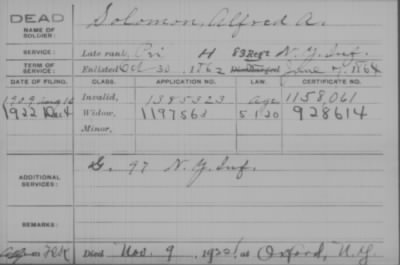 DEAD
NAME OF SOLDIER: Solomon, Alfred A.
SERVICE: Late rank, Pri H 83 Regt N.Y. Inf.
TERM OF SERVICE: Enlisted Oct 30, 1862 June 7, 1864
DATE OF FILING. CLASS. APPLICATION NO. LAW. CERTIFICATE NO.
1909 Aug 16 Invalid, 1385323 Age 1158061
1922 Dec 4 Widow, 1197563 5 1 20 928614
Minor,
ADDITIONAL SERVICES: G. 97 N.Y. Inf.
REMARKS:
Died Nov. 9, 1922, at Oxford, N.Y.